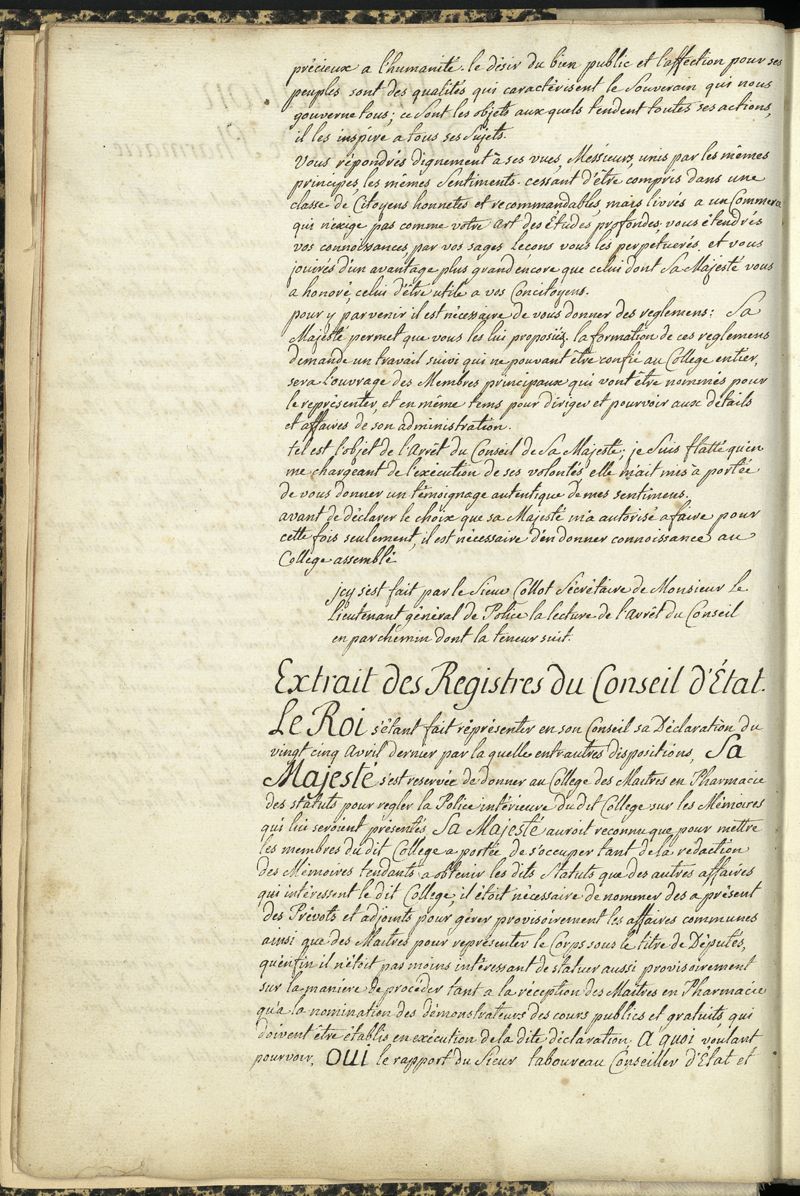 précieux a l'humanité. le désir du bien public et l'affection pour ses
peuples sont des qualités qui caractérisent le Souverain qui nous
gouverne tous; ce sont les objets aux quels tendent toutes ses actions,
il les inspire a tous ses Sujets.
Vous répondrés dignement à ses vues, Messieurs, unis par les mêmes
principes, les mêmes Sentiments. cessant d'être compris dans une
classe de Citoyens honnetes et recommandables, mais livrés a un Commerce
qui n'exige pas comme votre art des études profondes. vous étendrés
vos connoissances, par vos sages Leçons vous les perpetuerés, et vous
jouirés d'un avantage plus grand encore que celui dont Sa Majesté vous
a honoré, celui d'être utile a vos Concitoyens.
pour y parvenir il est nécessaire de vous donner des reglemens: Sa
Majesté permet que vous les lui proposiéz. la formation de ces reglemens
demande un travail suivi qui ne pouvant être confié au College entier,
sera l'ouvrage des Membres principaux qui vont être nommés pour
le représenter, et en même tems pour diriger et pourvoir aux détails
et affaires de son administration.
tel est l'objet de l'Arrêt du Conseil de Sa Majesté; je suis flatté qu'en
me chargeant de l'exécution de ses volontés elle m'ait mis à portée
de vous donner un témoignage autentique de mes sentimens.
avant de déclarer le choix que sa Majesté m'a autorisé a faire pour
cette fois seulement, il est nécessaire d'en donner connoissance au
College assemblé
jcy s'est fait par le Sieur Collot Sécrétaire de Monsieur Le
Lieutenant général de Police la lecture de l'Arrêt du Conseil
en parchemin dont la teneur suit.
Extrait des Registres du Conseil d'État.
Le Roi s'étant fait réprésenter en son Conseil sa Déclaration du
vingt cinq Avril dernier par la quelle entr'autres dispositions, Sa
Majesté s'est reservée de donner au College des Maitres en Pharmacie
des statuts pour regler la Police intérieure du dit College sur les Mémoires
qui lui seroient présentés, Sa Majesté auroit reconnu que pour mettre
les membres du dit College a portée de s'occuper tant de la rédaction
des Mémoires tendants a obtenir les dits Statuts que des autres affaires
qui intéressent le dit College, il étoit nécessaire de nommer des a présent
des Prévots et adjoints pour gérer provisoirement les affaires communes
ainsi que des Maitres pour représenter le Corps sous le titre de Députés,
qu'enfin il n'étoit pas moins intéressant de statuer aussi provisoirement
sur la maniere de procéder tant a la réception des Maitres en Pharmacie
qu'a la nomination des démonstrateurs des cours publics et gratuits qui
doivent être établis en exécution de la dite déclaration, A quoi voulant
pourvoir, OUI le rapport du Sieur taboureau Conseiller d'État et